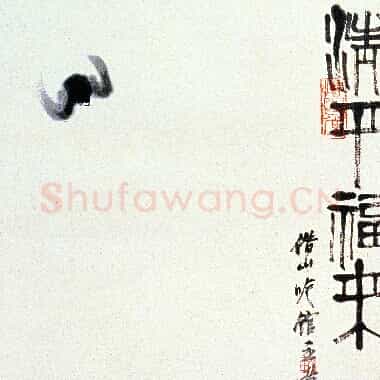 清平福来
借山吟馆主者
Shufawang.CN